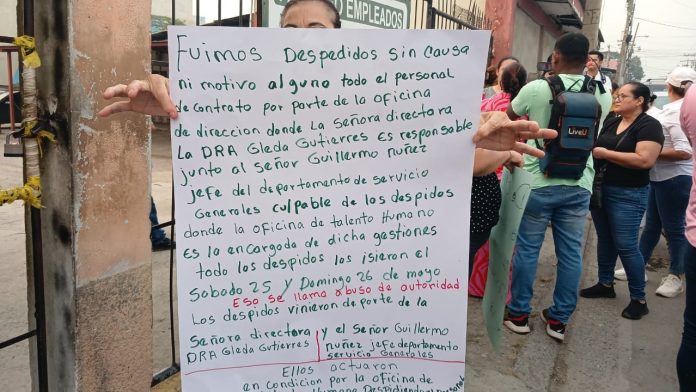 EMPLEADOS
Fuimos Despedidos sin causa
ni motivo alguno todo el personal
de contrato por parte de la oficina
de direccion donde La señora directara
La DRA Gleda Gutierres Es responsable
junto al señor Guillermo nuñez
jefe del departamento de servicio
Generales culpable de los despidos
donde la oficina de talento Humano
Es la encargada de dicha gestiones
todo los despidos los isieron el
Sabado 25 y Domingo 26 de mayo
Eso se llama abuso de autoridad
Los despidos vinieron de parte de la
Señora directara y el señor Guillermo
DRA Gleda Gutierres nuñez jefe departamento
servicio Generales
Ellos actuaron
en condicion por la oficina de
Humano Despidiendo
LiveU